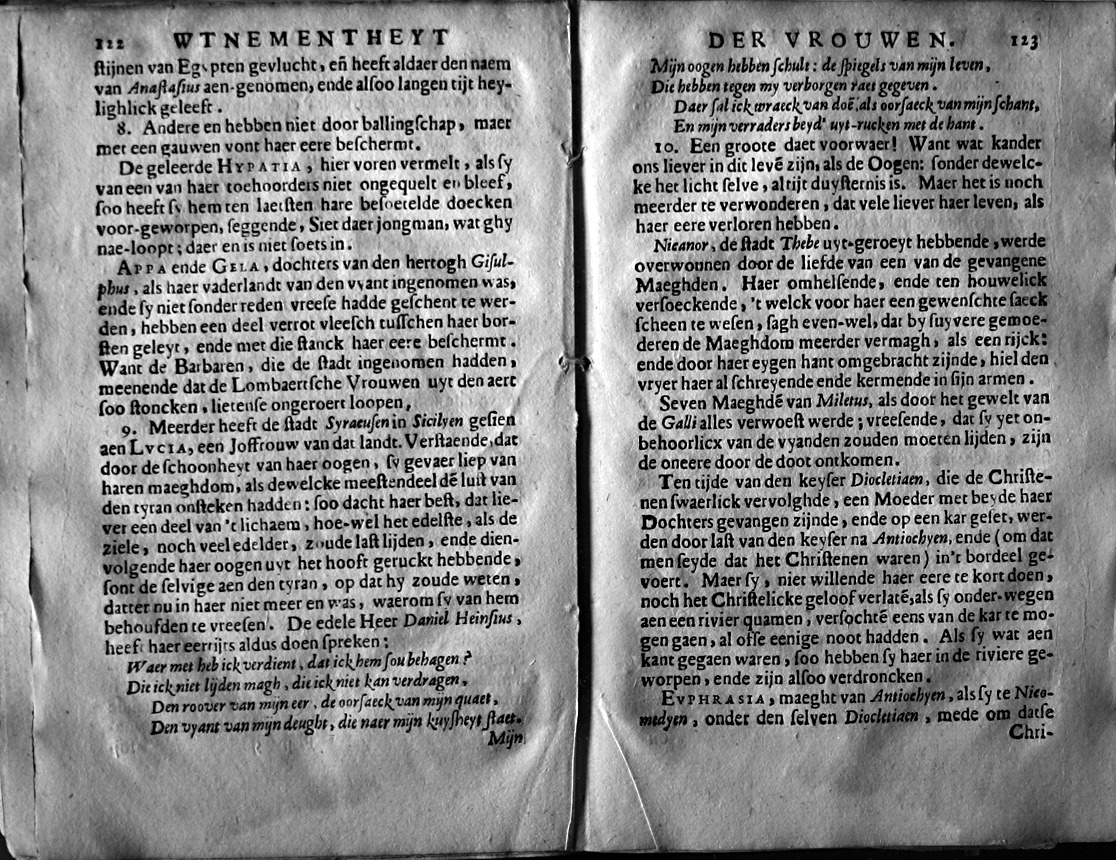 122 WTNEMENTHEYT
ſtijnen van Egypten gevlucht, eñ heeft aldaer den naem
van Anaſtaſius aen-genomen, ende alſoo langen tijt hey-
lighlick geleeft.
8. Andere en hebben niet door ballingſchap, maer
met een gauwen vont haer eere beſchermt.
De geleerde HYPATIA, hier voren vermelt, als ſy
van een van haer toehoorders niet ongequelt en bleef,
ſoo heeft ſy hem ten laetſten hare beſoetelde doecken
voor-geworpen, ſeggende, Siet daer jongman, wat ghy
nae-loopt; daer en is niet ſoets in.
APPA ende GELA, dochters van den hertogh Giſul-
phus, als haer vaderlandt van den vyant ingenomen was,
ende ſy niet ſonder reden vreeſe hadde geſchent te wer-
den, hebben een deel verrot vleeſch tuſſchen haer bor-
ſten geleyt, ende met die ſtanck haer eere beſchermt.
Want de Barbaren, die de ſtadt ingenomen hadden,
meenende dat de Lombaertſche Vrouwen uyt den aert
ſoo ſtoncken, lietenſe ongeroert loopen,
9. Meerder heeft de ſtadt Syracuſen in Sicilyen geſien
aen LVCIA, een Joffrouw van dat landt. Verſtaende, dat
door de ſchoonheyt van haer oogen, ſy gevaer liep van
haren maeghdom, als dewelcke meeſtendeel dē luſt van
den tyran onſteken hadden: ſoo dacht haer beſt, dat lie-
ver een deel van 't lichaem, hoe-wel het edelſte, als de
ziele, noch veel edelder, zoude laſt lijden, ende dien-
volgende haer oogen uyt het hooft geruckt hebbende,
ſont de ſelvige aen den tyran, op dat hy zoude weten,
datter nu in haer niet meer en was, waerom ſy van hem
behoufden te vreeſen. De edele Heer Daniel Heinſius,
heeft haer eertijts aldus doen ſpreken:
Waer met heb ick verdient, dat ick hem ſou behagen?
Die ick niet lijden magh, die ick niet kan verdragen,
Den roover van mijn eer, de oorſaeck van mijn quaet,
Den vyant van mijn deught, die naer mijn kuyſheyt ſtaet.
Mijn
DER VROUWEN. 123
Mijn oogen hebben ſchult: de ſpiegels van mijn leven,
Die hebben tegen my verborgen raet gegeven.
Daer ſal ick wraeck van doē, als oorſaeck van mijn ſchant,
En mijn verraders beyd' uyt-rucken met de hant.
10. Een groote daet voorwaer! Want wat kander
ons liever in dit levē zijn, als de Oogen: ſonder dewelc-
ke het licht ſelve, altijt duyſternis is. Maer het is noch
meerder te verwonderen, dat vele liever haer leven, als
haer eere verloren hebben.
Nicanor, de ſtadt Thebe uyt-geroeyt hebbende, werde
overwonnen door de liefde van een van de gevangene
Maeghden. Haer omhelſende, ende ten houwelick
verſoeckende, 't welck voor haer een gewenſchte ſaeck
ſcheen te weſen, ſagh even-wel, dat by ſuyvere gemoe-
deren de Maeghdom meerder vermagh, als een rijck:
ende door haer eygen hant omgebracht zijnde, hiel den
vryer haer al ſchreyende ende kermende in ſijn armen.
Seven Maeghdē van Miletus, als door het gewelt van
de Galli alles verwoeſt werde; vreeſende, dat ſy yet on-
behoorlicx van de vyanden zouden moeten lijden, zijn
de oneere door de doot ontkomen.
Ten tijde van den keyſer Diocletiaen, die de Chriſte-
nen ſwaerlick vervolghde, een Moeder met beyde haer
Dochters gevangen zijnde, ende op een kar geſet, wer-
den door laſt van den keyſer na Antiochyen, ende (om dat
men ſeyde dat het Chriſtenen waren) in't bordeel ge-
voert. Maer ſy, niet willende haer eere te kort doen,
noch het Chriſtelicke geloof verlatē, als ſy onder-wegen
aen een rivier quamen, verſochtē eens van de kar te mo-
gen gaen, al ofſe eenige noot hadden. Als ſy wat aen
kant gegaen waren, ſoo hebben ſy haer in de riviere ge-
worpen, ende zijn alſoo verdroncken.
EVPHRASIA, maeght van Antiochyen, als ſy te Nico-
medyen, onder den ſelven Diocletiaen, mede om datſe
Chri-